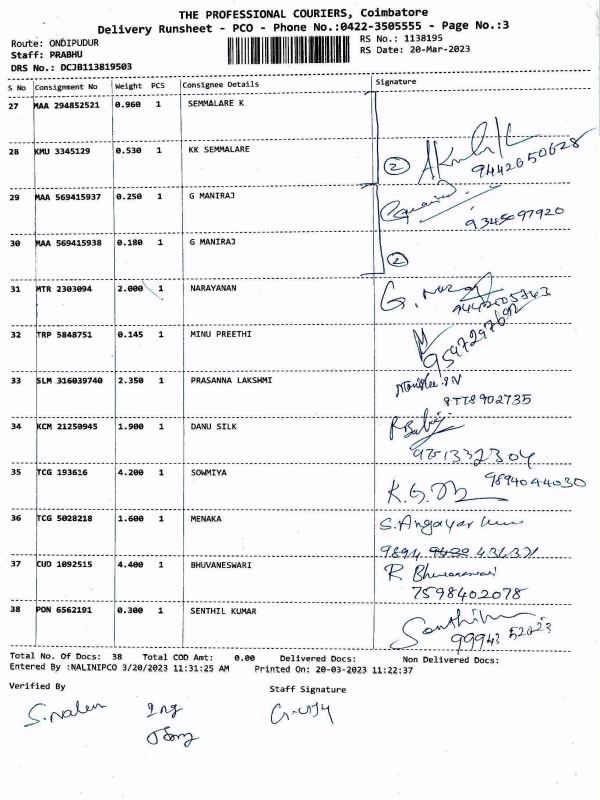 THE PROFESSIONAL COURIERS, Coimbatore
Delivery Runsheet - PCO - Phone No.:0422-3505555 - Page No.:3
Route: ONDIPUDUR RS No.: 1138195
Staff: PRABHU RS Date: 20-Mar-2023
DRS No.: DCJB113819503
S No Consignment No Weight PCS Consignee Details Signature
27 MAA 294852521 0.960 1 SEMMALARE K
28 KMU 3345129 0.530 1 KK SEMMALARE 2
9442650628
29 MAA 569415937 0.250 1 G MANIRAJ
9345097920
30 MAA 569415938 0.180 1 G MANIRAJ 2
31 MTR 2303094 2.000 1 NARAYANAN
32 TRP 5848751 0.145 1 MINU PREETHI
33 SLM 316039740 2.350 1 PRASANNA LAKSHMI
8778902735
34 KCM 21250945 1.900 1 DANU SILK
35 TCG 193616 4.200 1 SOWMIYA
9894044030
36 TCG 5028218 1.600 1 MENAKA S. Angayar
37 CUD 1092515 4.400 1 BHUVANESWARI R. Bhuvaneswari
7598402078
38 PON 6562191 0.300 1 SENTHIL KUMAR
99943 52023
Total No. Of Docs: 38 Total COD Amt: 0.00 Delivered Docs: Non Delivered Docs:
Entered By :NALINIPCO 3/20/2023 11:31:25 AM Printed On: 20-03-2023 11:22:37
Verified By Staff Signature